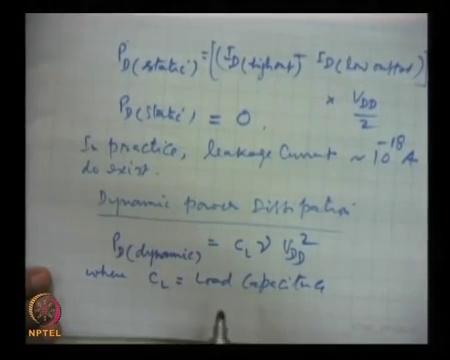 P_D(static) = [(I_D(high out) - I_D(low output)]
× V_DD/2
P_D(static) = 0.
In practice, leakage current ~ 10^-18 A
do exist.
Dynamic power Dissipation
P_D(dynamic) = C_L ν V_DD^2
where C_L = Load Capacitance
NPTEL